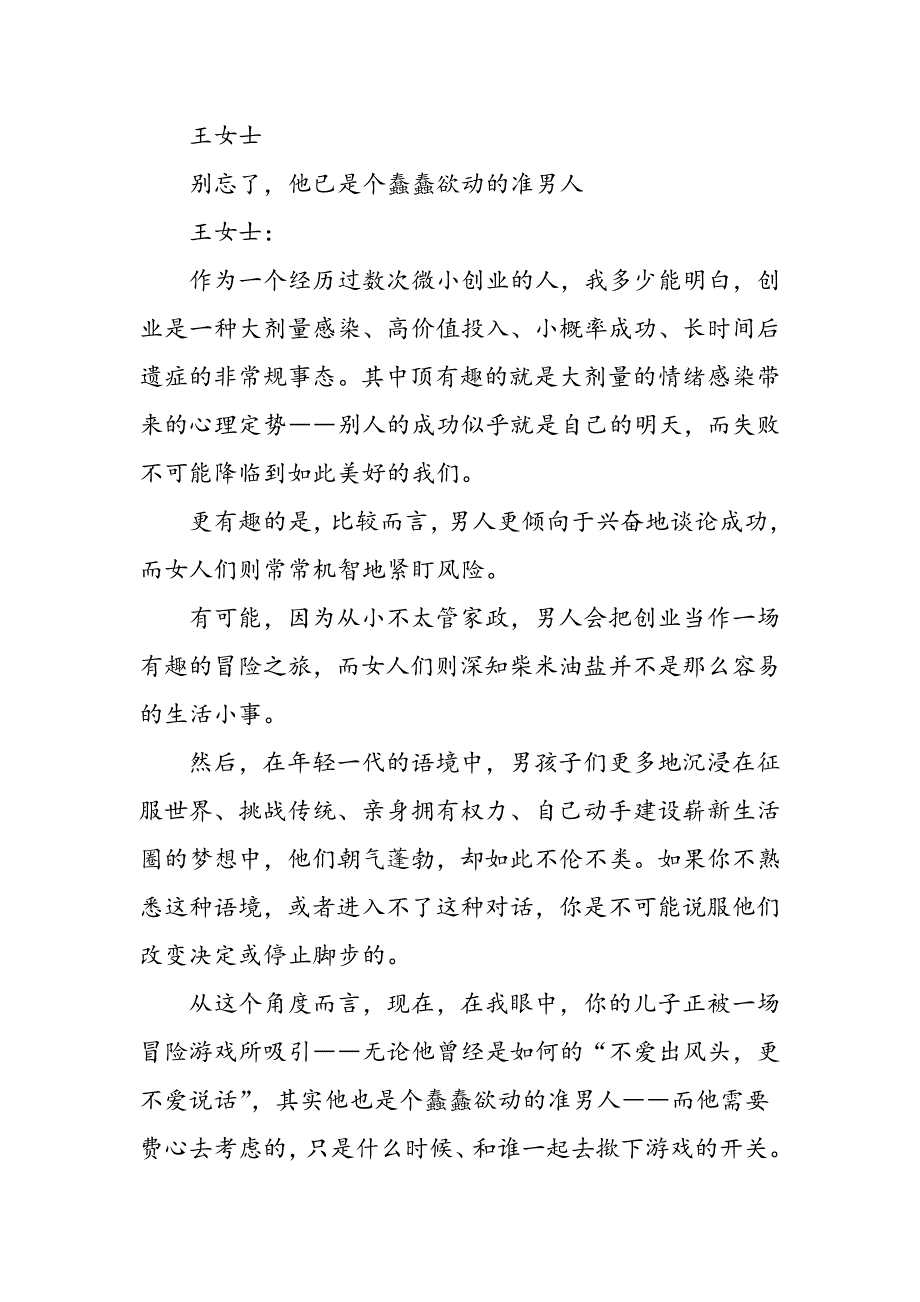 王女士
别忘了，他已是个蠢蠢欲动的准男人
王女士：
作为一个经历过数次微小创业的人，我多少能明白，创
业是一种大剂量感染、高价值投入、小概率成功、长时间后
遗症的非常规事态。其中顶有趣的就是大剂量的情绪感染带
来的心理定势——别人的成功似乎就是自己的明天，而失败
不可能降临到如此美好的我们。
更有趣的是，比较而言，男人更倾向于兴奋地谈论成功，
而女人们则常常机智地紧盯风险。
有可能，因为从小不太管家政，男人会把创业当作一场
有趣的冒险之旅，而女人们则深知柴米油盐并不是那么容易
的生活小事。
然后，在年轻一代的语境中，男孩子们更多地沉浸在征
服世界、挑战传统、亲身拥有权力、自己动手建设崭新生活
圈的梦想中，他们朝气蓬勃，却如此不伦不类。如果你不熟
悉这种语境，或者进入不了这种对话，你是不可能说服他们
改变决定或停止脚步的。
从这个角度而言，现在，在我眼中，你的儿子正被一场
冒险游戏所吸引——无论他曾经是如何的“不爱出风头，更
不爱说话”，其实他也是个蠢蠢欲动的准男人——而他需要
费心去考虑的，只是什么时候、和谁一起去揿下游戏的开关。